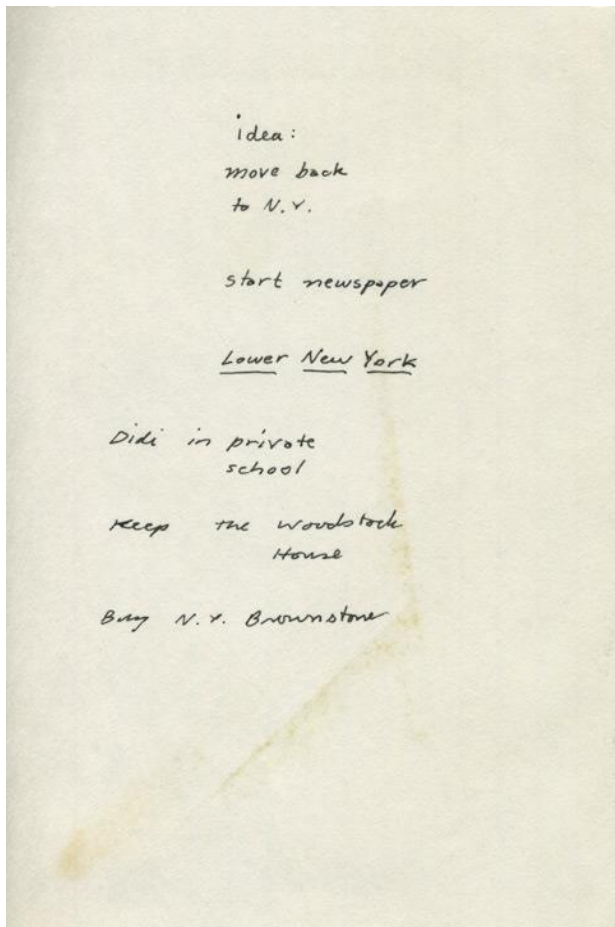 idea:
move back
to N.Y.
start newspaper
Lower New York
Didi in private
school
Keep the Woodstock
House
Buy N.Y. Brownstone